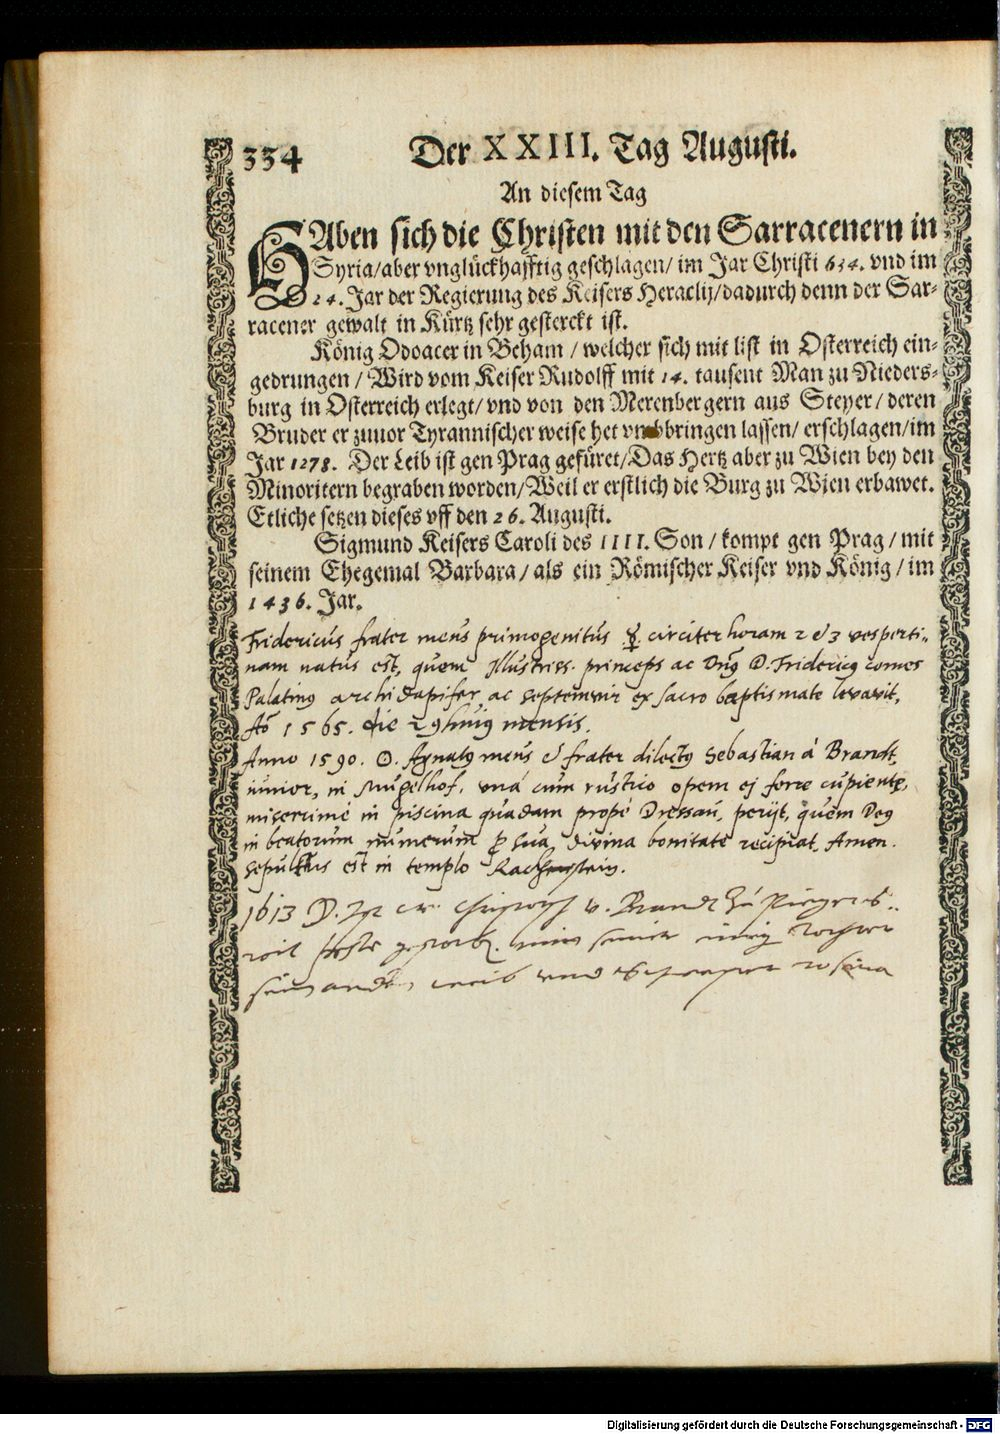 334 Der XXIII. Tag Augusti.
An diesem Tag
HAben sich die Christen mit den Sarracenern in
Syria/aber vnglückhafftig geschlagen/ im Jar Christi 634. vnd im
24. Jar der Regierung des Keisers Heraclij/dadurch denn der Sar⸗
racener gewalt in Kürtz sehr gesterckt ist.
König Odoacer in Beham / welcher sich mit list in Osterreich ein⸗
gedrungen / Wird vom Keiser Rudolff mit 14. tausent Man zu Nieders⸗
burg in Osterreich erlegt/ vnd von den Merenbergern aus Steyer / deren
Bruder er zuuor Tyrannischer weise het vmbbringen lassen/ erschlagen/im
Jar 1278. Der Leib ist gen Prag gefüret/Das Hertz aber zu Wien bey den
Minoritern begraben worden/Weil er erstlich die Burg zu Wien erbawet.
Etliche setzen dieses vff den 26. Augusti.
Sigmund Keisers Caroli des IIII. Son / kompt gen Prag / mit
seinem Ehegemal Barbara / als ein Römischer Keiser vnd König / im
1436. Jar.
Fridericus frater meus primogenitus ☿ circiter horam 2 & 3 vesperti⸗
nam natus est, quem Illustriss. princeps ac Dns D. Fridericus comes
Palatinus archidapifer ac septemvir ex sacro baptismate levavit,
Ao 1565. die 29 huius mensis.
Anno 1590. ☉. Agnatus meus & frater dilectus Sebastian à Brandt,
iunior, in Mugelhof, unà cum rustico opem ei ferre cupiente,
miserrime in piscina quadam propè Dressau, perijt, quem Deus
in beatorum numerum p sua divina bonitate recipiat. Amen.
Sepultus est in templo
1613 D. v. Brandt zu
weib vnd rosina